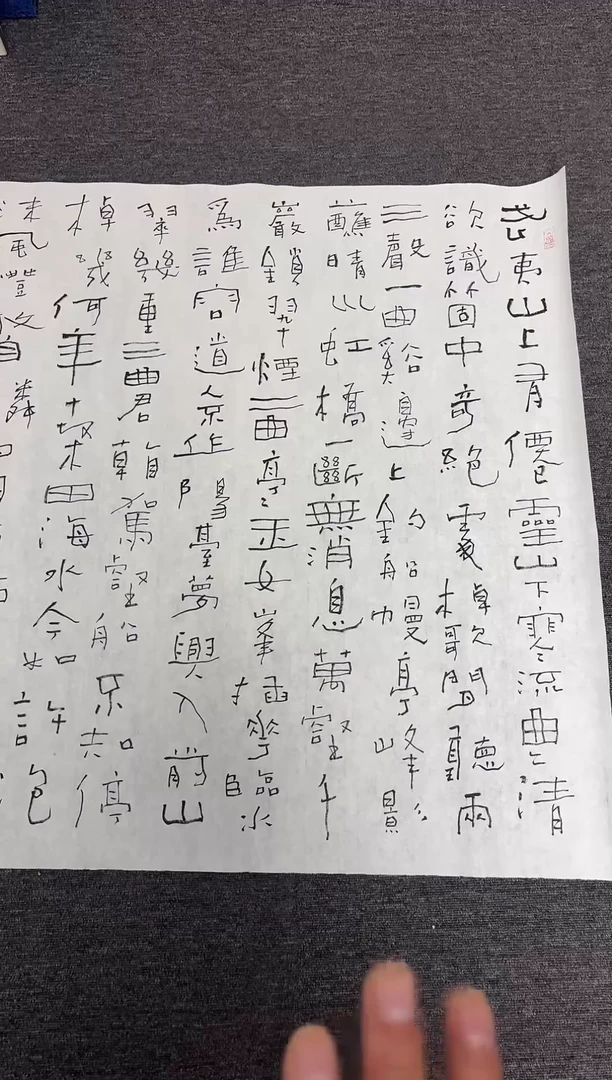 武夷山上有僊靈山下寒流曲〻清
欲識箇中奇絕處棹歌閒聽兩
三聲一曲谿邊上釣船幔亭峰景
蘸晴川虹橋一斷無消息萬壑千
巖鎖翠煙二曲亭〻玉女峯插花臨水
爲誰容道人不作陽臺夢興入前山
翠幾重三曲君看架壑船不知停
棹幾何年桑田海水今如許泡
沫風燈敢自憐